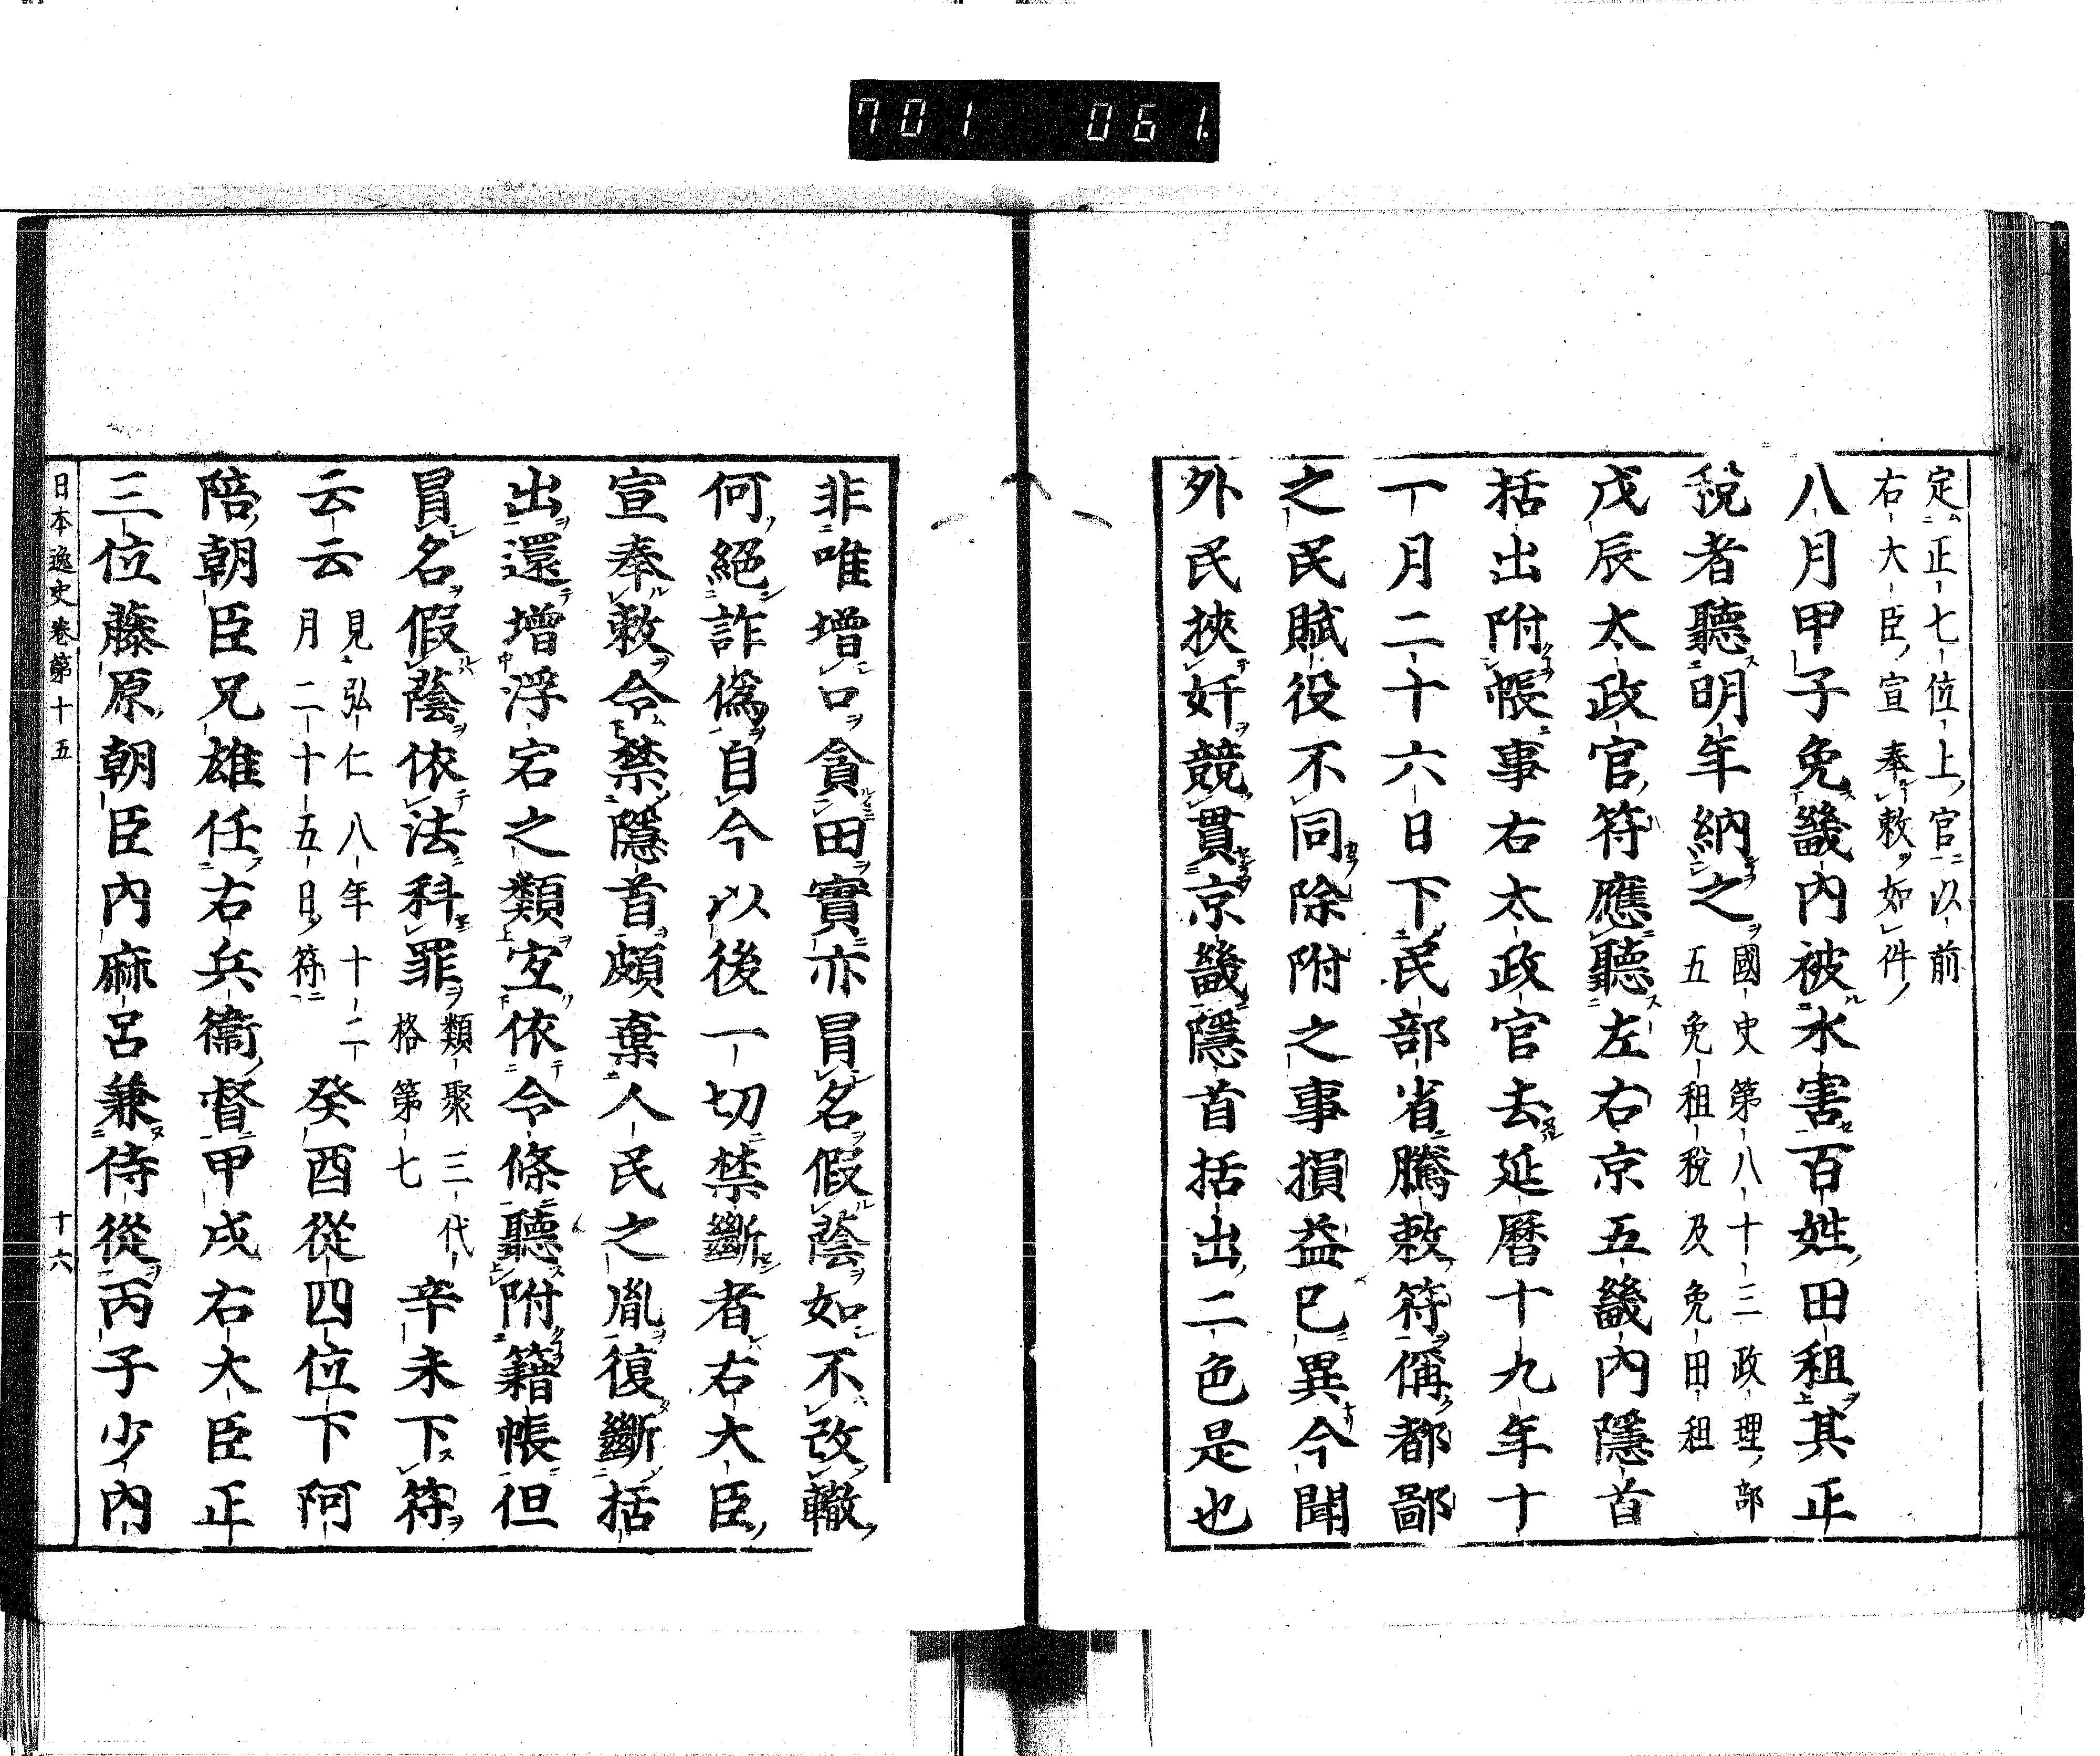 701 061.
定正七位上官以前
右大臣宣奉敕如件
八月甲子免畿內被水害百姓田租其正
稅者聽明年納之國史第八十三政理部
五免租稅及免田租
戊辰太政官符應聽左右京五畿內隱首
括出附帳事右太政官去延曆十九年十
一月二十六日下民部省騰敕符偁都鄙
之民賦役不同除附之事損益已異今聞
外民挾奸競貫京畿隱首括出二色是也
非唯增口貪田實亦冒名假蔭如不改轍
何絕詐僞自今以後一切禁斷者右大臣
宣奉敕令禁隱首頗棄人民之胤復斷括
出還增浮宕之類宜依令條聽附籍帳但
冒名假蔭依法科罪類聚三代
格第七辛未下符
云云見弘仁八年十二
月二十五日符癸酉從四位下阿
陪朝臣兄雄任右兵衞督甲戌右大臣正
三位藤原朝臣內麻呂兼侍從丙子少內
日本逸史卷第十五 十六